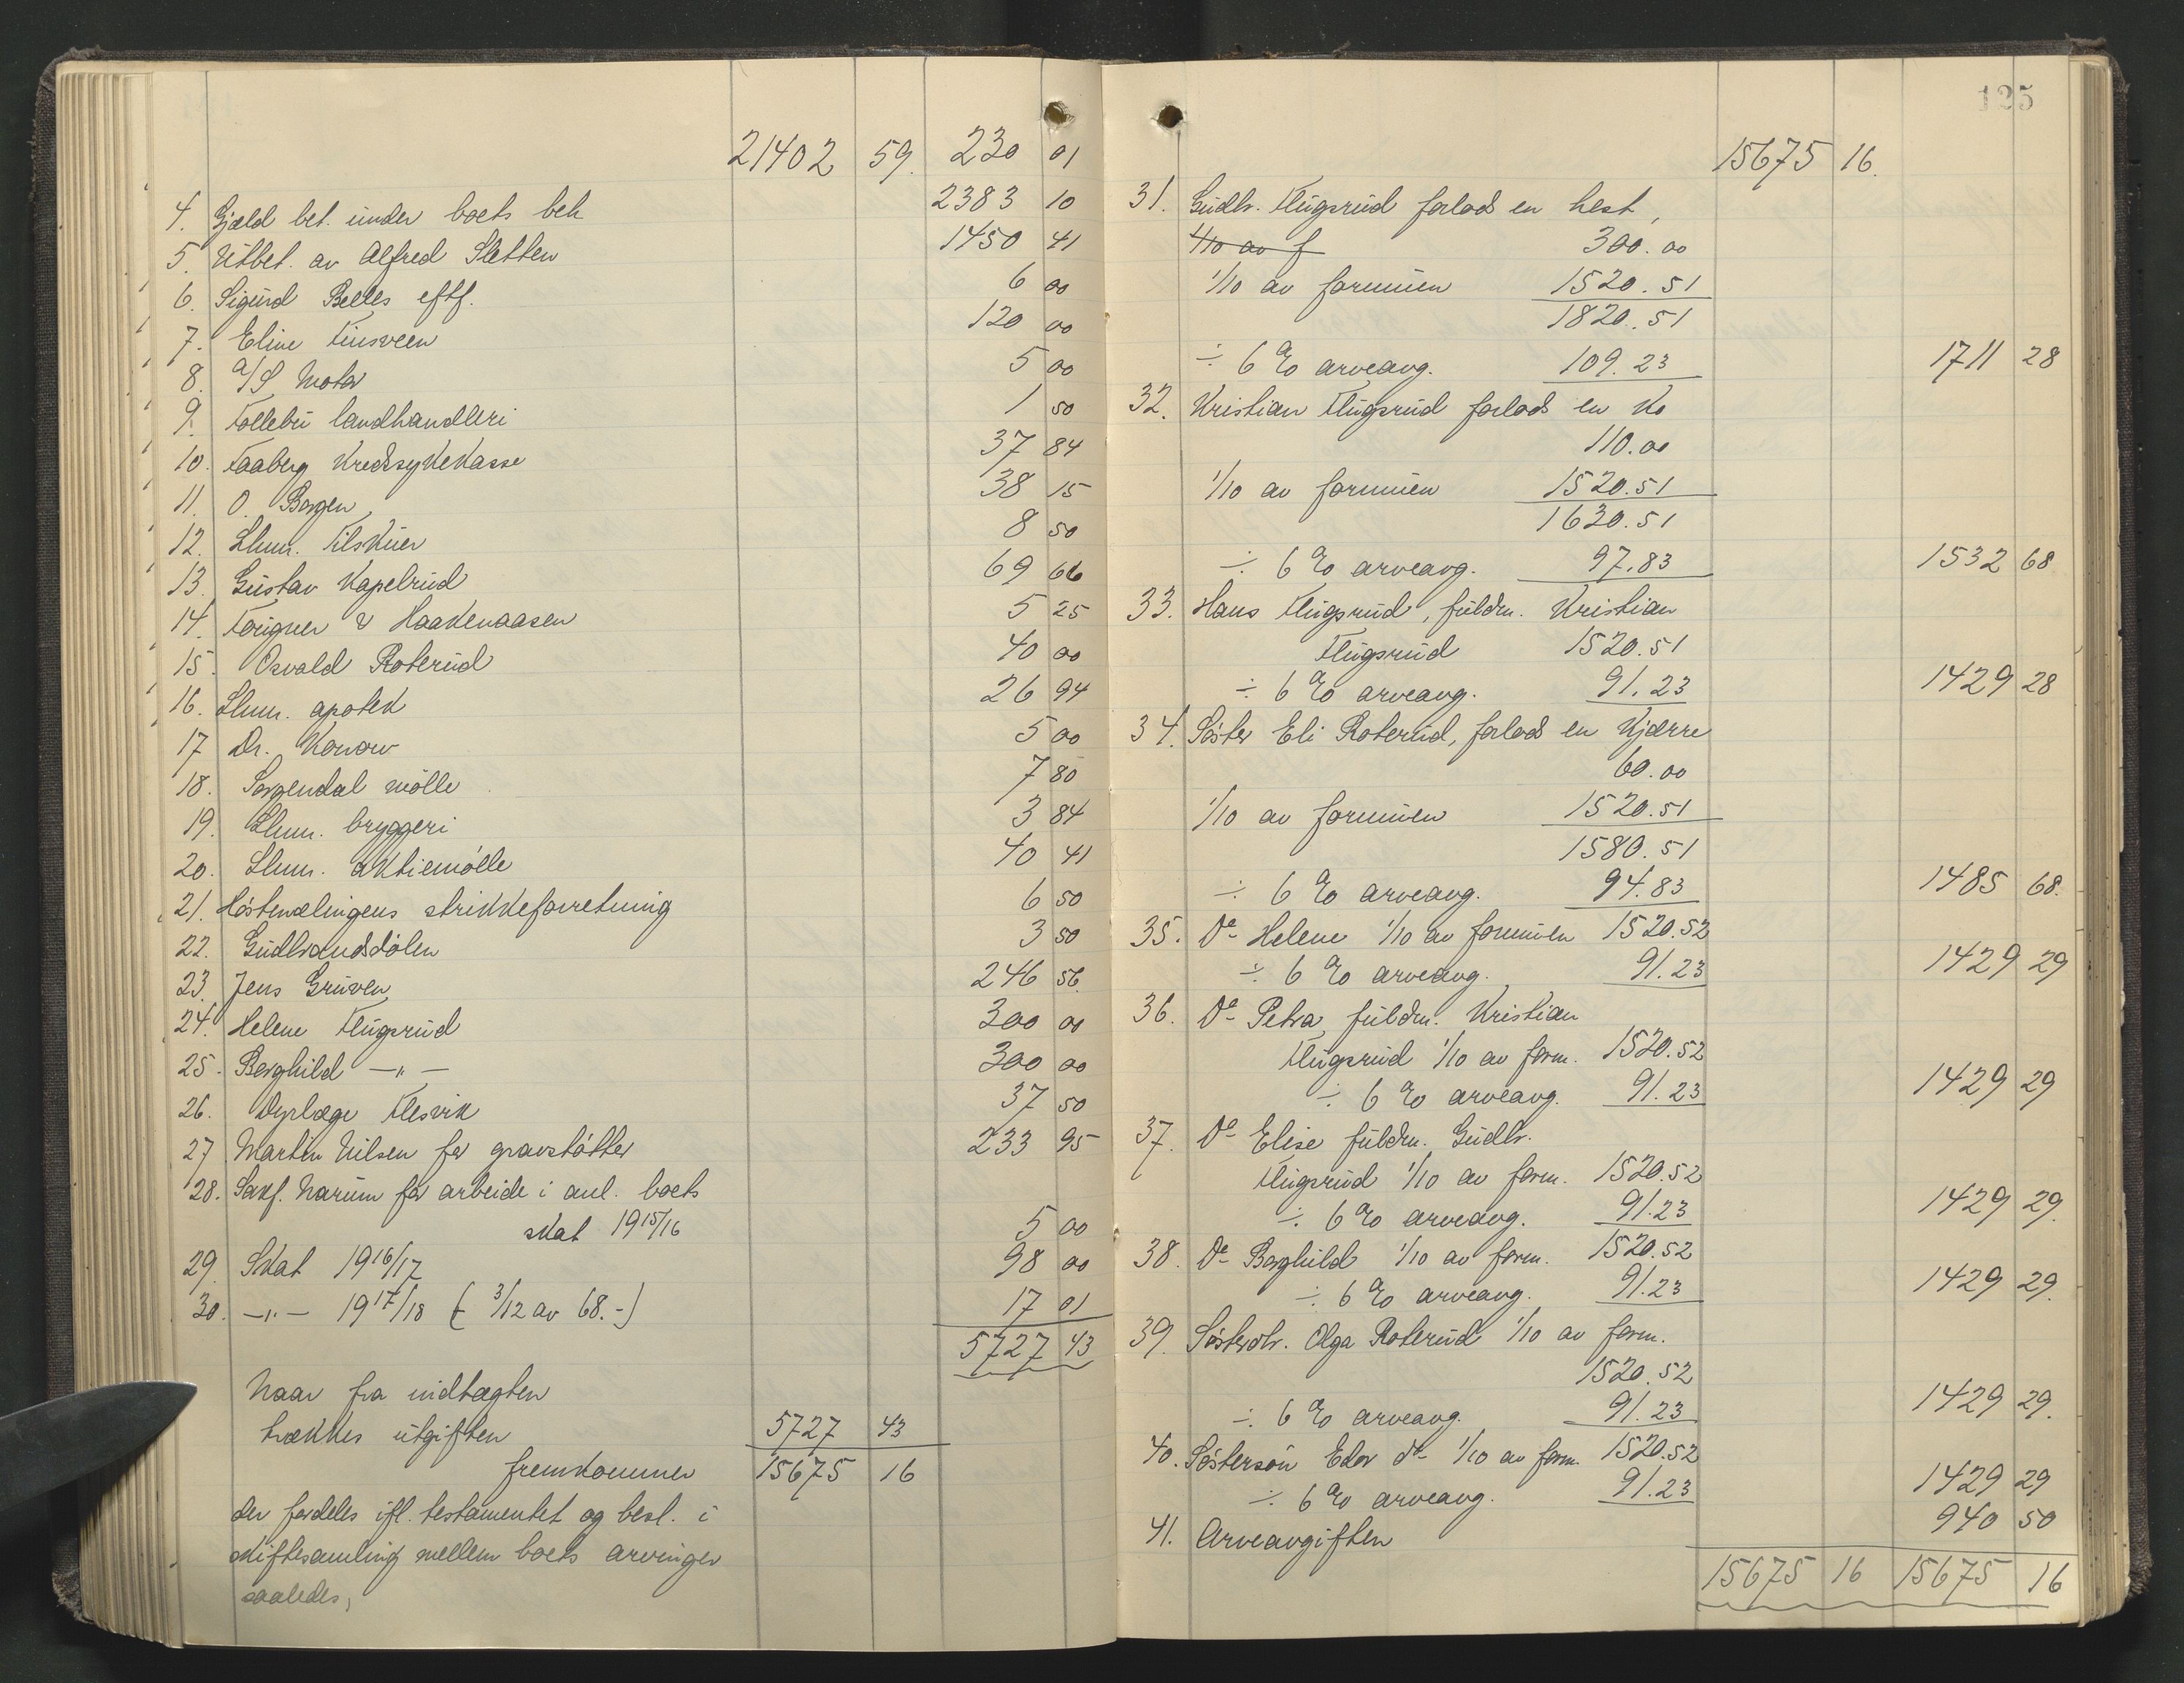 21402 59. 230 01
4. Gjæld bet. under boets beh 2383 10
5. Utbet. av Alfred Sletten 1450 41
6. Sigurd Belles eftf. 6 00
7. Eline Tinsveen 120 00
8. A/S Motor 5 00
9. Follebu landhandleri 1 50
10. Faaberg Kredssykekasse 37 84
11. O. Borgen 38 15
12. Lhmr. Tilskuer 8 50
13. Gustav Kapelrud 69 66
14. Forigner & Haakenaasen 5 25
15. Osvald Roterud 40 00
16. Lhmr. apotek 26 94
17 Dr. Konow 5 00
18. Sorgendal mølle 7 80
19. Lhmr. bryggeri 3 84
20. Lhmr. aktiemølle 40 41
21. Høstmælingens strikkeforretning 6 50
22. Gudbrandsdølen 3 50
23. Jens Gruven 246 56.
24. Helene Flugsrud 300 00
25. Borghild —"— 300 00
26. Dyrlæge Flesvik 37 50
27 Martin Nilsen for gravstøtter 233 95
28. Sakf. Narum for arbeide i anl. boets
skat 1915/16 5 00
29. Skat 1916/17 98 00
30. —"— 1917/18 ( 3/12 av 68.-) 17 01
5727 43
Naar fra indtægten
trækkes utgiften 5727 43
fremkommer 15675 16
der fordeles ifl. testamentet og besl. i
skiftesamling mellem boets arvinger
saaledes,
125
15675 16.
31. Gudbr. Flugsrud forlods en hest,
1/10 av f 300.00
1/10 av formuen 1520.51
1820.51
÷ 6 % arveavg. 109.23 1711 28
32. Kristian Flugsrud forlods en Ko
110.00
1/10 av formuen 1520.51
1630.51
÷ 6 % arveavg. 97.83 1532 68
33. Hans Flugsrud, fuldm. Kristian
Flugsrud 1520.51
÷ 6 % arveavg. 91.23 1429 28
34. Søster Eli Roterud, forlods en Kjærre
60.00
1/10 av formuen 1520.51
1580.51
÷ 6 % arveavg. 94.83 1485 68.
35. Do Helene 1/10 av formuen 1520.52
÷ 6 % arveavg. 91.23 1429 29
36. Do Petra, fuldm. Kristian
Flugsrud 1/10 av form. 1520.52
÷ 6 % arveavg. 91.23 1429 29
37. Do Elise fuldm. Gudbr.
Flugsrud 1/10 av form. 1520.52
÷ 6 % arveavg. 91.23 1429 29.
38. Do Borghild 1/10 av form. 1520.52
÷ 6 % arveavg. 91.23 1429 29.
39. Søsterdtr. Olga Roterud 1/10 av form.
1520.52
÷ 6 % arveavg. 91.23 1429 29.
40. Søstersøn Edor do 1/10 av form. 1520.52
÷ 6 % arveavg. 91.23 1429 29
41. Arveavgiften 940 50
15675 16 15675 16